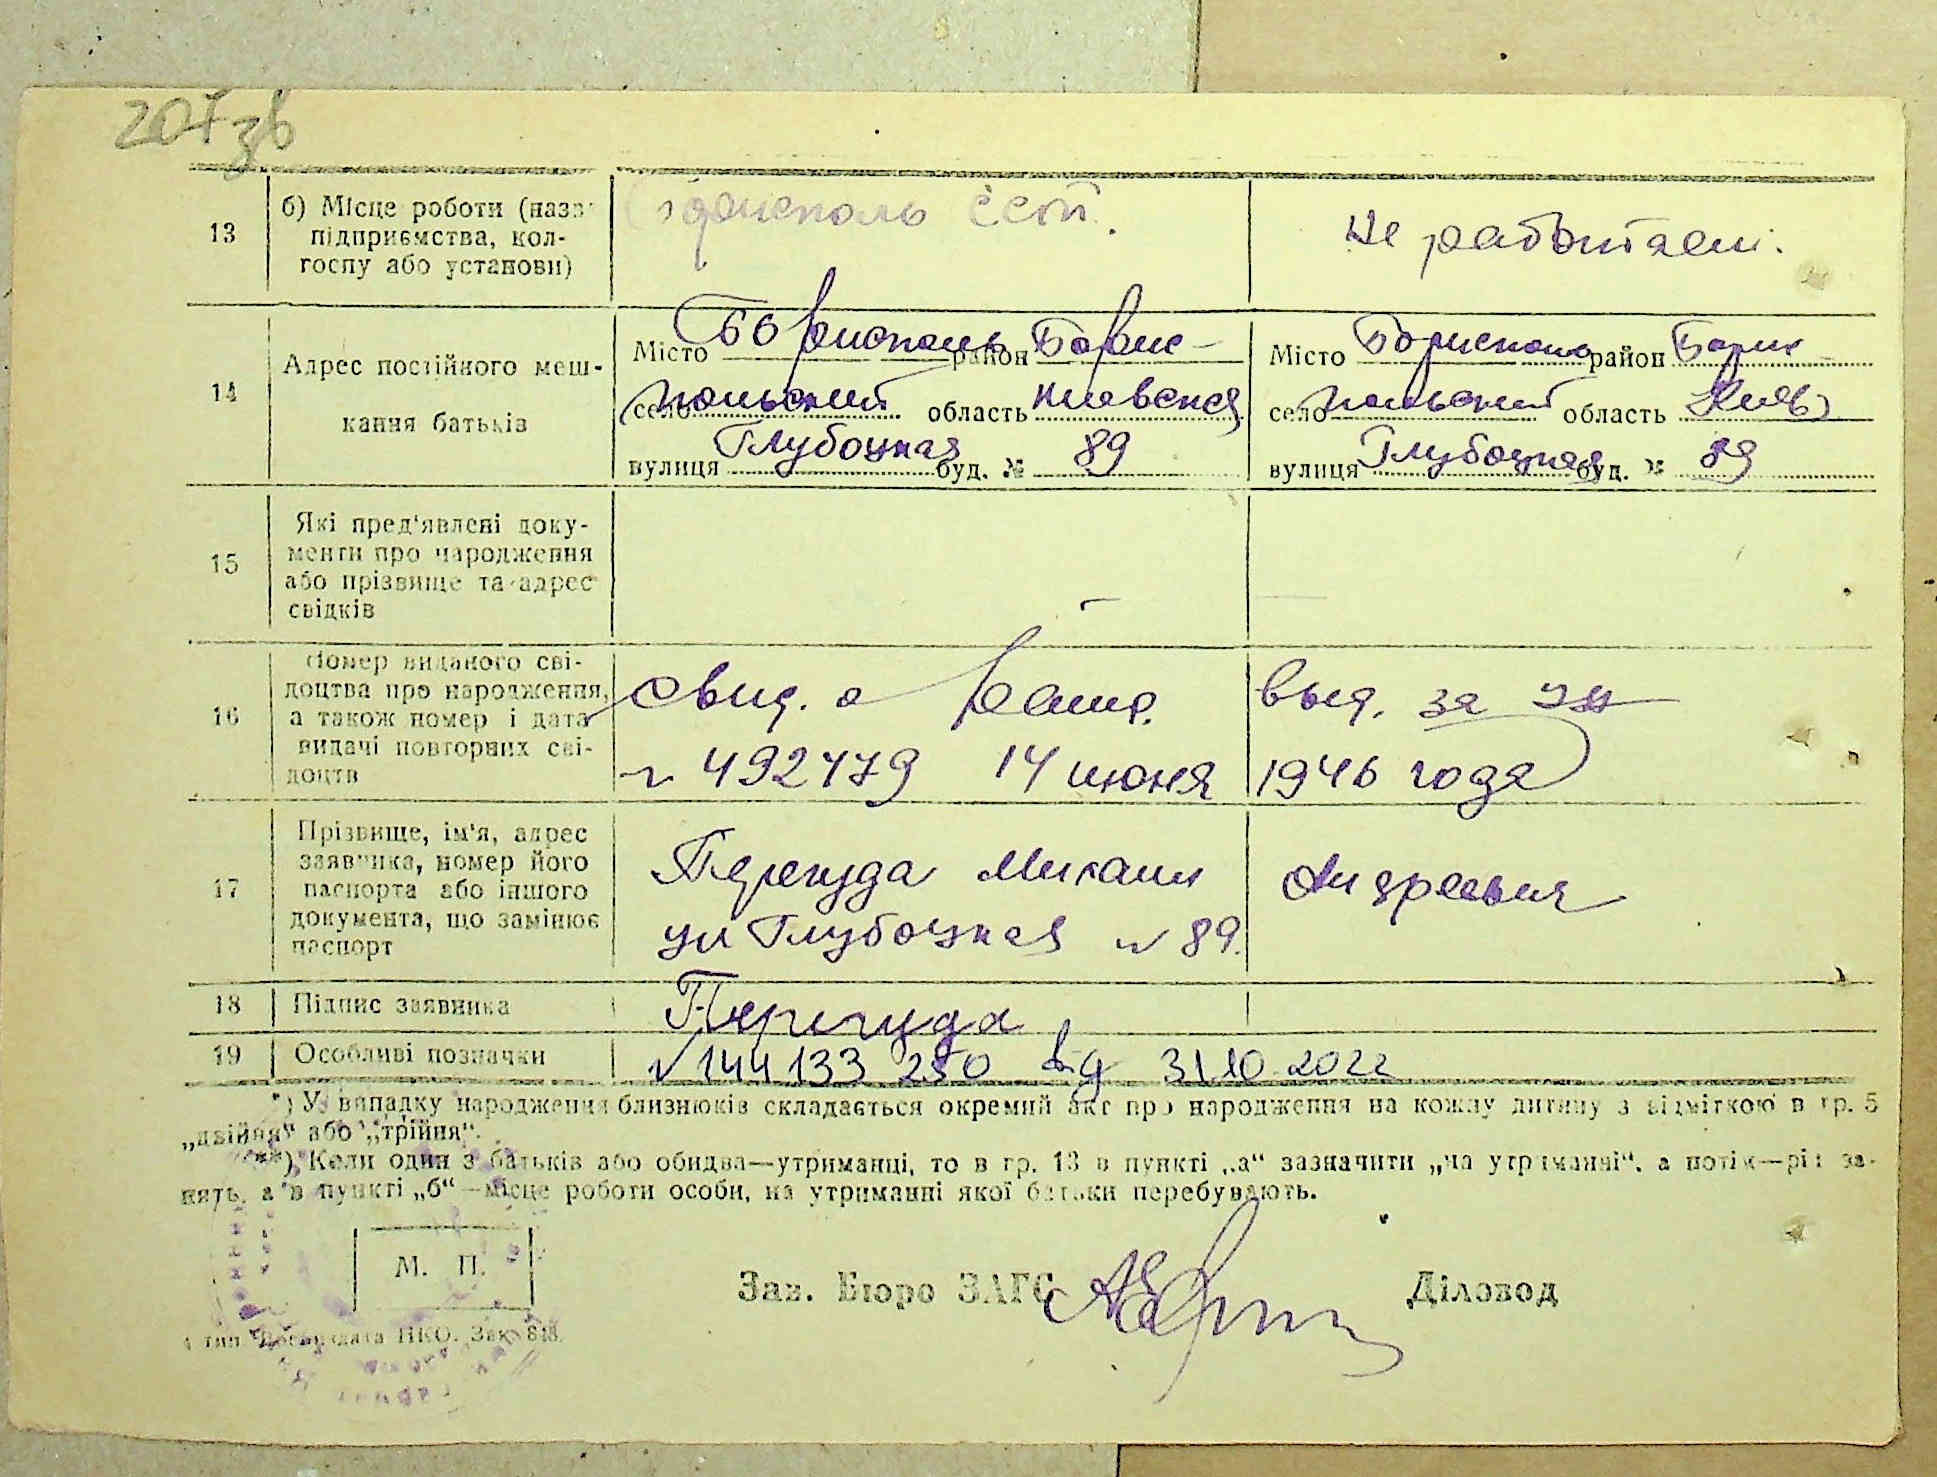 207зв
13
б) Місце роботи (назва
підприємства, кол-
госпу або установи)
Не работает.
14
Адрес постійного меш-
кання батьків
Місто Борисполь район Борис-
село польский область киевская
вулиця Глубоцкая буд. № 89
Місто Борисполь район Борис-
село польский область Киев
вулиця Глубоцкая буд. № 89
15
Які пред'явлені доку-
менти про народження
або прізвище та адрес
свідків
16
Номер виданого сві-
доцтва про народження,
а також номер і дата
видачі повторних сві-
доцтв
Свид. о выд. за
№ 492479 14 июня 1946 года
17
Прізвище, ім'я, адрес
заявника, номер його
паспорта або іншого
документа, що замінює
паспорт
Перегуда Михаил Андреевич
ул Глубоцкая № 89.
18
Підпис заявника
Перегуда
19
Особливі позначки
№ 144133 250 від 31.10.2022
*) У випадку народження близнюків складається окремий акт про народження на кожну дитину з відміткою в гр. 5
„двійня“ або „трійня“.
**) Коли один з батьків або обидва—утриманці, то в гр. 13 в пункті „а“ зазначити „на утриманні“, а потім—рід за-
нять, а в пункті „б“—місце роботи особи, на утриманні якої батьки перебувають.
М. П.
Зав. Бюро ЗАГС
Діловод